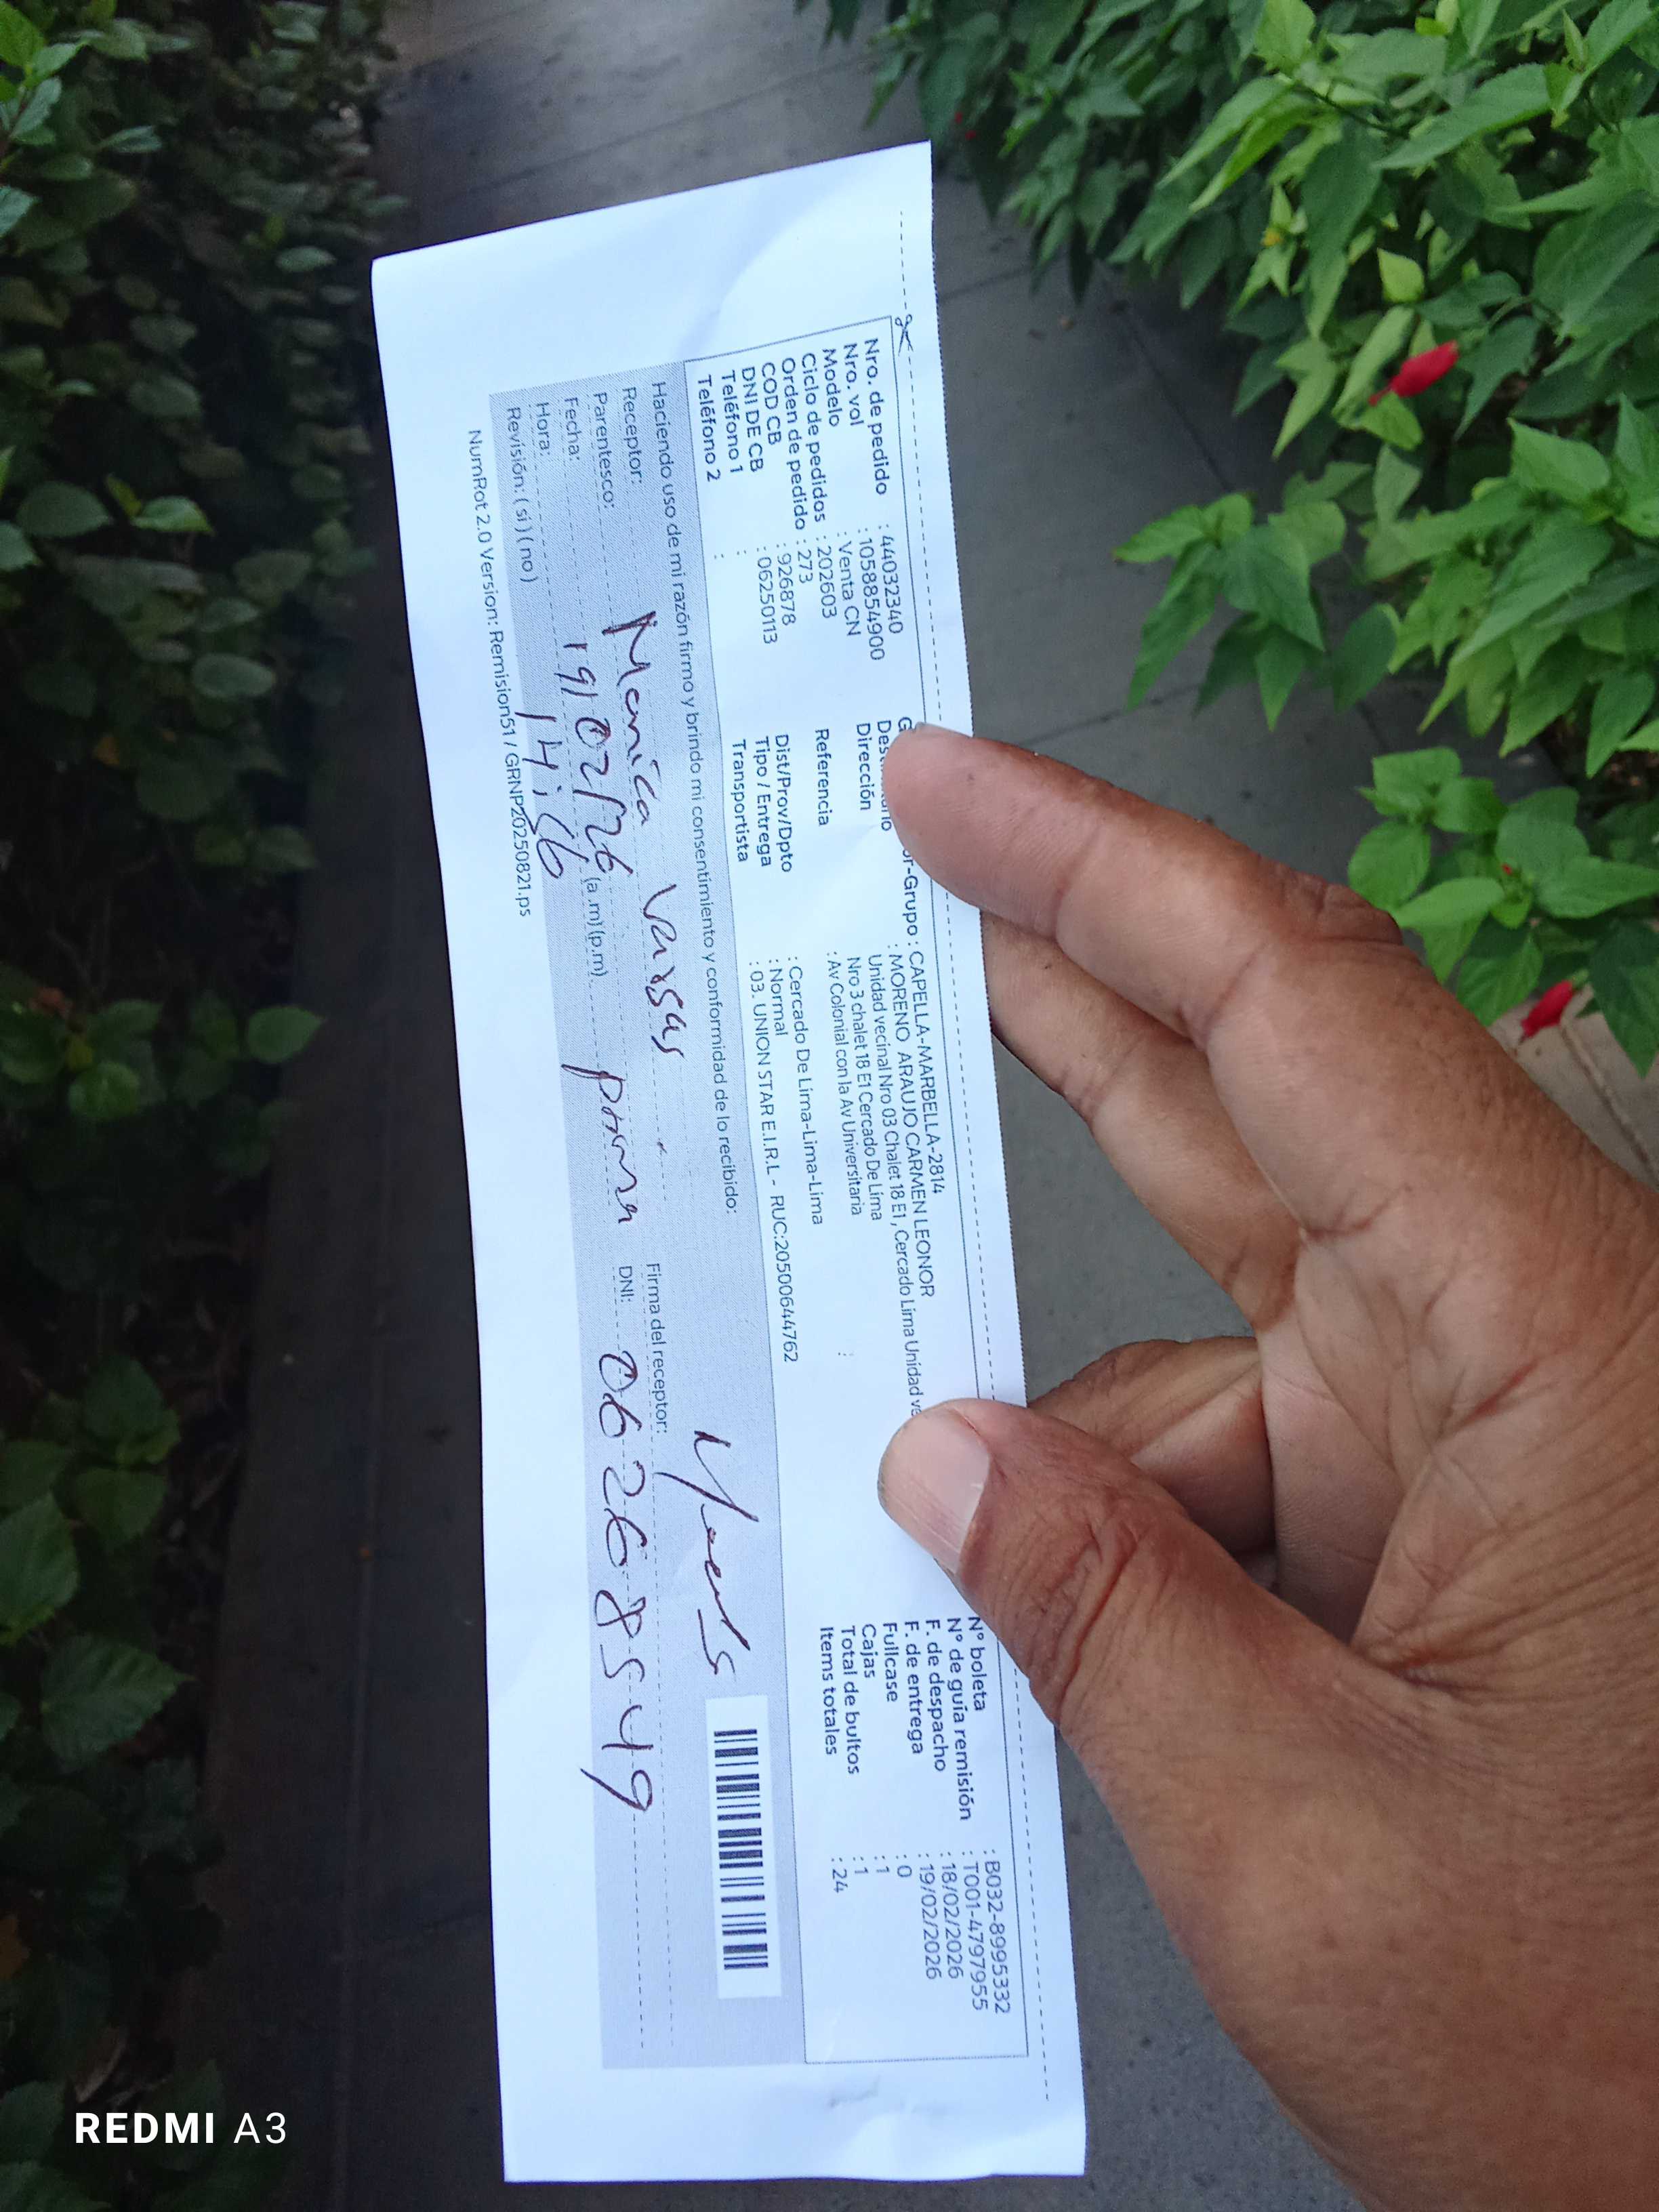 Nro. de pedido : 44032340
Nro. vol : 1058854900
Modelo : Venta CN
Ciclo de pedidos : 202603
Orden de pedido : 273
COD CB : 926878
DNI DE CB : 06250113
Teléfono 1 :
Teléfono 2 :
or-Grupo : CAPELLA-MARBELLA-2814
: MORENO ARAUJO CARMEN LEONOR
Dirección : Unidad vecinal Nro 03 Chalet 18 E1, Cercado Lima Unidad ve
Nro 3 chalet 18 E1 Cercado De Lima
Referencia : Av Colonial con la Av Universitaria
Dist/Prov/Dpto : Cercado De Lima-Lima-Lima
Tipo / Entrega : Normal
Transportista : 03. UNION STAR E.I.R.L - RUC:20500644762
N° boleta : B032-8995332
N° de guía remisión : T001-4797955
F. de despacho : 18/02/2026
F. de entrega : 19/02/2026
Fullcase : 0
Cajas : 1
Total de bultos : 1
Items totales : 24
Haciendo uso de mi razón firmo y brindo mi consentimiento y conformidad de lo recibido:
Receptor: Monica Vargas
Firma del receptor:
Parentesco: prima
DNI: 06268549
Fecha: 19/02/26
Hora: 14:16 (a.m) (p.m)
Revisión: ( si ) ( no )
NumRot 2.0 Version: Remision51 / GRNP20250821.ps
REDMI A3